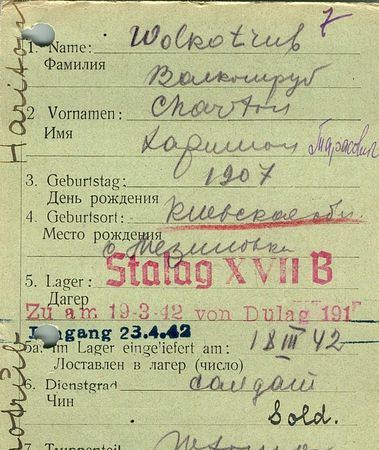 7
1. Name: Wolkotrub
Фамилия
Валкотруб
2 Vornamen: Chariton
Имя
Харитон Тарасович
3. Geburtstag: 1907
День рождения
4. Geburtsort: Киевская обл.
Место рождения
с.
5. Lager: Stalag XVII B
Лагер
Zu am 19-3-42 von Dulag 191
Eingang 23.4.42
5a. Im Lager eingeliefert am: 18 III 42
Доставлен в лагер (число)
6. Dienstgrad солдат
Чин
Sold.
7. Truppenteil
Hariton